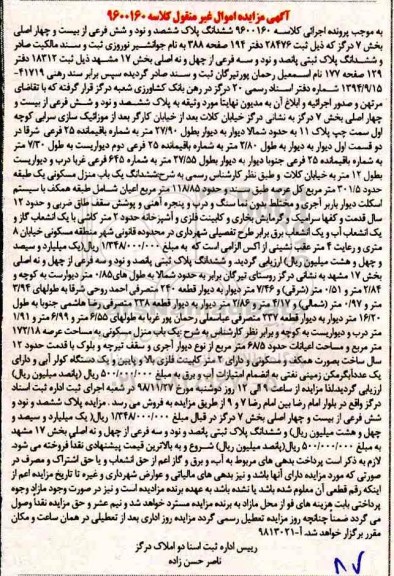 آگهی مزایده اموال غیر منقول کلاسه ۹۶۰۰۱۶۰
به موجب پرونده اجرائی کلاسه ۹۶۰۰۱۶۰ ششدانگ پلاک ششصد و نود و شش فرعی از بیست و چهار اصلی
بخش ۷ درگز که ذیل ثبت ۲۸۴۷۶ دفتر ۱۹۴ صفحه ۳۸۸ به نام جوانشیر نوروزی ثبت و سند مالکیت صادر
و ششدانگ پلاک ثبتی پانصد و نود و سه فرعی از چهل و نه اصلی بخش ۱۷ مشهد ذیل ثبت ۱۸۳۱۲ دفتر
۱۲۹ صفحه ۱۷۷ نام اسمعیل رحمان پورتیرگان ثبت و سند صادر گردیده سپس برابر سند رهنی ۴۱۷۱۹-
۱۳۹۴/۹/۱۵ شماره دفتر اسناد رسمی ۲۰ درگز در رهن بانک کشاورزی شعبه درگز قرار گرفته که با تقاضای
مرتهن و صدور اجرائیه و ابلاغ آن به مدیون نهایتا مورد وثیقه به پلاک ششصد و نود و شش فرعی از بیست و
چهار اصلی بخش ۷ درگز به نشانی درگز خیابان کلات بعد از خیابان کارگر بعد از موزائیک سازی سرابی کوچه
اول سمت چپ پلاک ۱۱ به حدود شمالا دیوار به دیوار بطول ۲۷/۹۰ متر به شماره باقیمانده ۲۵ فرعی شرقا در
دو قسمت اول دیوار به دیوار بطول ۲/۸۰ متر به شماره باقیمانده ۲۵ فرعی دوم دیواریست به طول ۷/۳۰ متر
به شماره باقیمانده ۲۵ فرعی جنوبا دیوار به دیوار بطول ۲۷/۵۵ متر به شماره ۶۴۵ فرعی غربا درب و دیواریست
بطول ۱۲ متر به خیابان کلات و طبق نظر کارشناس رسمی به شرح:ششدانگ یک باب منزل مسکونی یک طبقه
حدود ۳۰۱/۵ متر مربع کل عرصه طبق سند و حدود ۱۱۸/۸۵ متر مربع اعیان شامل طبقه همکف با سیستم
اسکلت دیوار باربر آجری و مختلط بدون نما سنگ و درب و پنجره آهنی و پوشش سقف طاق ضربی و حدود ۱۲
سال قدمت و کفها سرامیک و گرمایش بخاری و کابینت فلزی و آشپزخانه حدود ۲ متر کاشی با یک انشعاب گاز و
یک انشعاب آب و یک انشعاب برق برابر طرح تفصیلی شهرداری در محدوده قانونی شهر منطقه مسکونی خیابان ۸
متری و رعایت ۴ متر عقب نشینی از اکس الزامی است که به مبلغ ۱/۳۴۸/۰۰۰/۰۰۰ ریال(یک میلیارد و سیصد
و چهل و هشت میلیون ریال) ارزیابی گردید و ششدانگ پلاک ثبتی پانصد و نود و سه فرعی از چهل و نه اصلی
بخش ۱۷ مشهد به نشانی درگز روستای تیرگان برابر به حدود شمالا به طول های ۰/۸۵ متر دیواریست به کوچه و
۲/۸۴ متر و ۰/۵۱ متر (شرقی) و ۷/۴۶ متر دیوار به دیوار قطعه ۲۴۰ متصرفی احمد روحی شرقا به طولهای ۳/۹۴
متر و ۰/۹۷ متر (شمالی) و ۴/۱۷ متر و ۲/۸۶ متر دیوار به دیوار قطعه ۲۳۸ متصرفی رضا هاشمی جنوبا به طول
۱۶/۲۰ متر دیوار به دیوار قطعه ۲۳۷ متصرفی عباسعلی رحمان پور غربا به طولهای ۶/۵۵ متر و ۶/۹۹ متر و ۱/۹۱
متر درب و دیواریست به کوچه و برابر نظر کارشناس به شرح :یک باب منزل مسکونی به مساحت عرصه ۱۷۲/۱۸
متر مربع و مساحت اعیانات حدود ۶۸/۵ متر مربع از نوع دیوار آجری و سقف تیرچه و بلوک با قدمت حدود ۱۲
سال ساخت بصورت همکف و مسکونی و دارای ۲ متر کابینت فلزی بالا و پایین و یک دستگاه کولر آبی و دارای
یک عددآبگرمکن زمینی نفتی به انضمام امتیازات آب و برق به مبلغ ۵۰۰/۰۰۰/۰۰۰ ریال (پانصد میلیون ریال)
ارزیابی گردیدلذا مزایده از ساعت ۹ الی ۱۲ روز دوشنبه مورخ ۹۸/۱۱/۲۷ در شعبه اجرای ثبت اداره ثبت اسناد
درگز واقع در بلوار امام رضا بین امام رضا ۷ و ۹ از طریق مزایده به فروش می رسد . مزایده پلاک ششصد و نود و
شش فرعی از بیست و چهار اصلی بخش ۷ درگز در قبال مبلغ ۱/۳۴۸/۰۰۰/۰۰۰ ریال( یک میلیارد و سیصد و
چهل و هشت میلیون ریال) و ششدانگ پلاک ثبتی پانصد و نود و سه فرعی از چهل و نه اصلی بخش ۱۷ مشهد
به مبلغ ۵۰۰/۰۰۰/۰۰۰ ریال(پانصد میلیون ریال) شروع و به بالاترین قیمت پیشنهادی نقدا فروخته می شود.
لازم به ذکر است پرداخت بدهی های مربوط به آب، و برق و گاز اعم از حق انشعاب و یا حق اشتراک و مصرف در
صورتی که مورد مزایده دارای آنها باشد و نیز بدهی های مالیاتی و عوارض شهرداری و غیره تا تاریخ مزایده اعم از
اینکه رقم قطعی آن معلوم شده باشد یا نشده باشد به عهده برنده مزایده است و نیز در صورت وجود مازاد وجوه
پرداختی بابت هزینه های فو از محل مازاد به برنده مزایده مسترد خواهد شد و نیم عشر و حق مزایده نقداً وصول
می گردد ضمناً چنانچه روز مزایده تعطیل رسمی گردد مزایده روز اداری بعد از تعطیلی در همان ساعت و مکان
مقرر برگزار خواهد شد. آ-۹۸۱۳۰۲۱
رییس اداره ثبت اسنا دو املاک درگز
ناصر حسن زاده